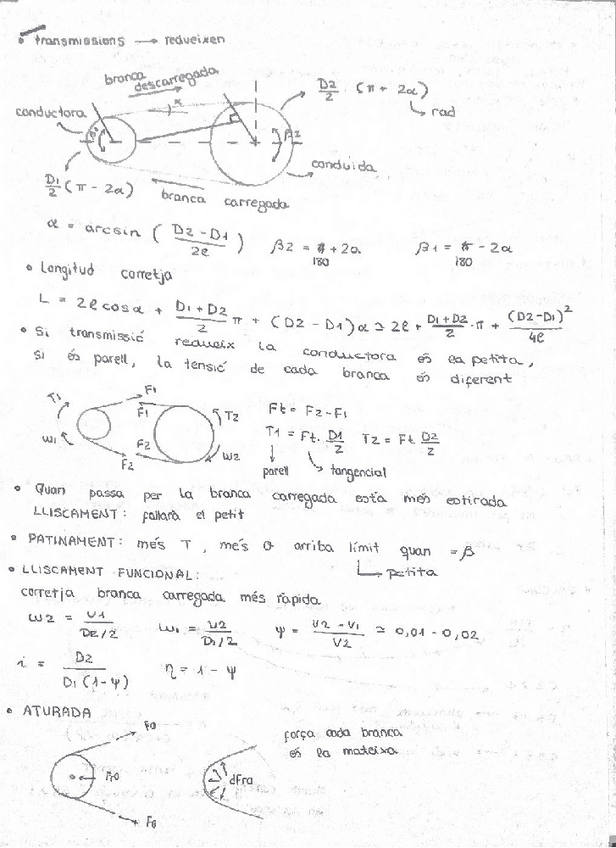 • transmissions → redueixen
branca descarregada
α
D2/2 · (π + 2α)
↳ rad
conductora
β1
β2
conduïda
D1/2 (π - 2α)
branca carregada
α = arcsin ( (D2 - D1) / 2ℓ )   β2 = π + 2α   β1 = π - 2α
180   180
• Longitud corretja
L = 2ℓ cos α + (D1 + D2)/2 π + (D2 - D1) α ≃ 2ℓ + (D1 + D2)/2 · π + (D2 - D1)²/4ℓ
• Si transmissió redueix la conductora és la petita,
si és parell, la tensió de cada branca és diferent
T1 F1 F1 T2 ω1 F2 F2 ω2
Ft = F2 - F1
T1 = Ft · D1/2   T2 = Ft D2/2
parell   tangencial
• Quan passa per la branca carregada està més estirada
LLISCAMENT: fallarà el petit
• PATINAMENT: més T, més θ arriba límit quan = β
↳ petita
• LLISCAMENT FUNCIONAL:
corretja branca carregada més ràpida
ω2 = V1 / (D2/2)   ω1 = V2 / (D1/2)   ψ = (V2 - V1) / V2 ≃ 0,01 - 0,02
i = D2 / (D1 (1 - ψ))   η = 1 - ψ
• ATURADA
F0
Fr0
F0
dFra
força cada branca
és la mateixa